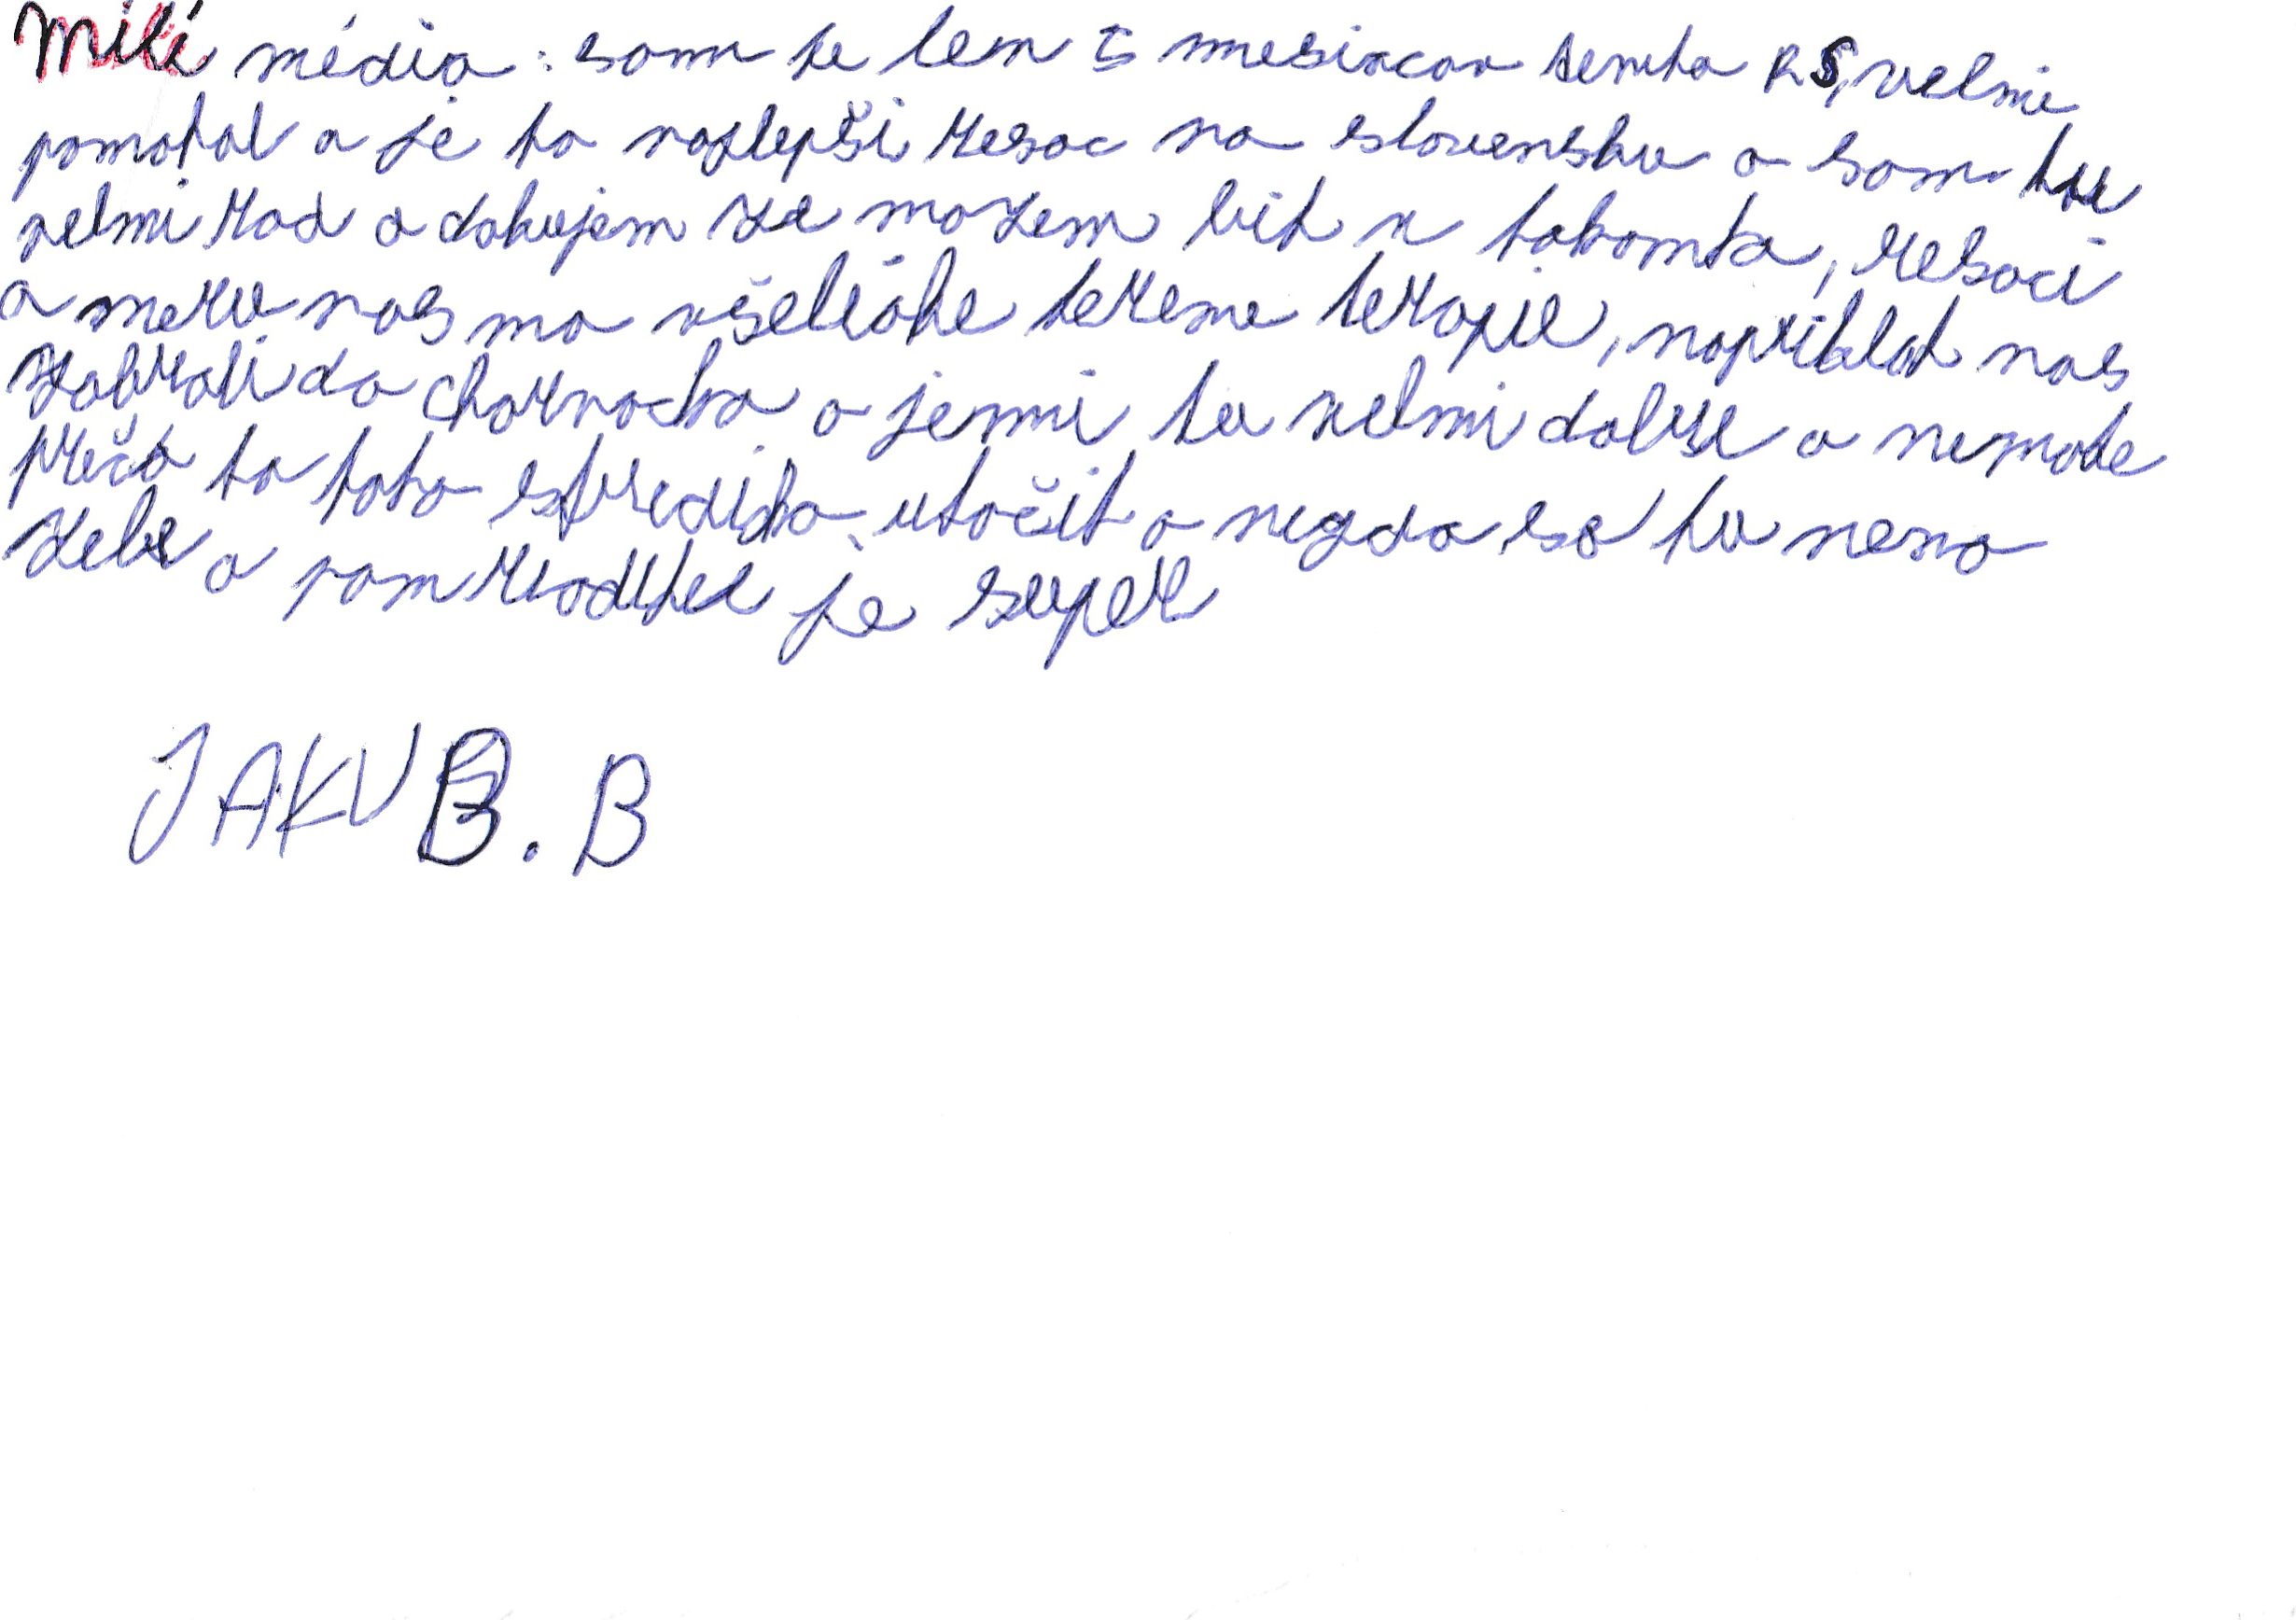 Milí média: som tu len 5 mesiacov tento RS, velmi
pomohol a je to najlepší resoc na slovensku a som tu
velmi rad a dakujem ze mozem bit v takomto, resoci
a maju nas na všeliake terene terapie, napriklat nas
zobrali do chorvacka a jemi tu velmi dobre a nemate
prečo to toho strediska utočit a nigda sa tu neno
zebe a pan riaditel je super
JAKUB. B